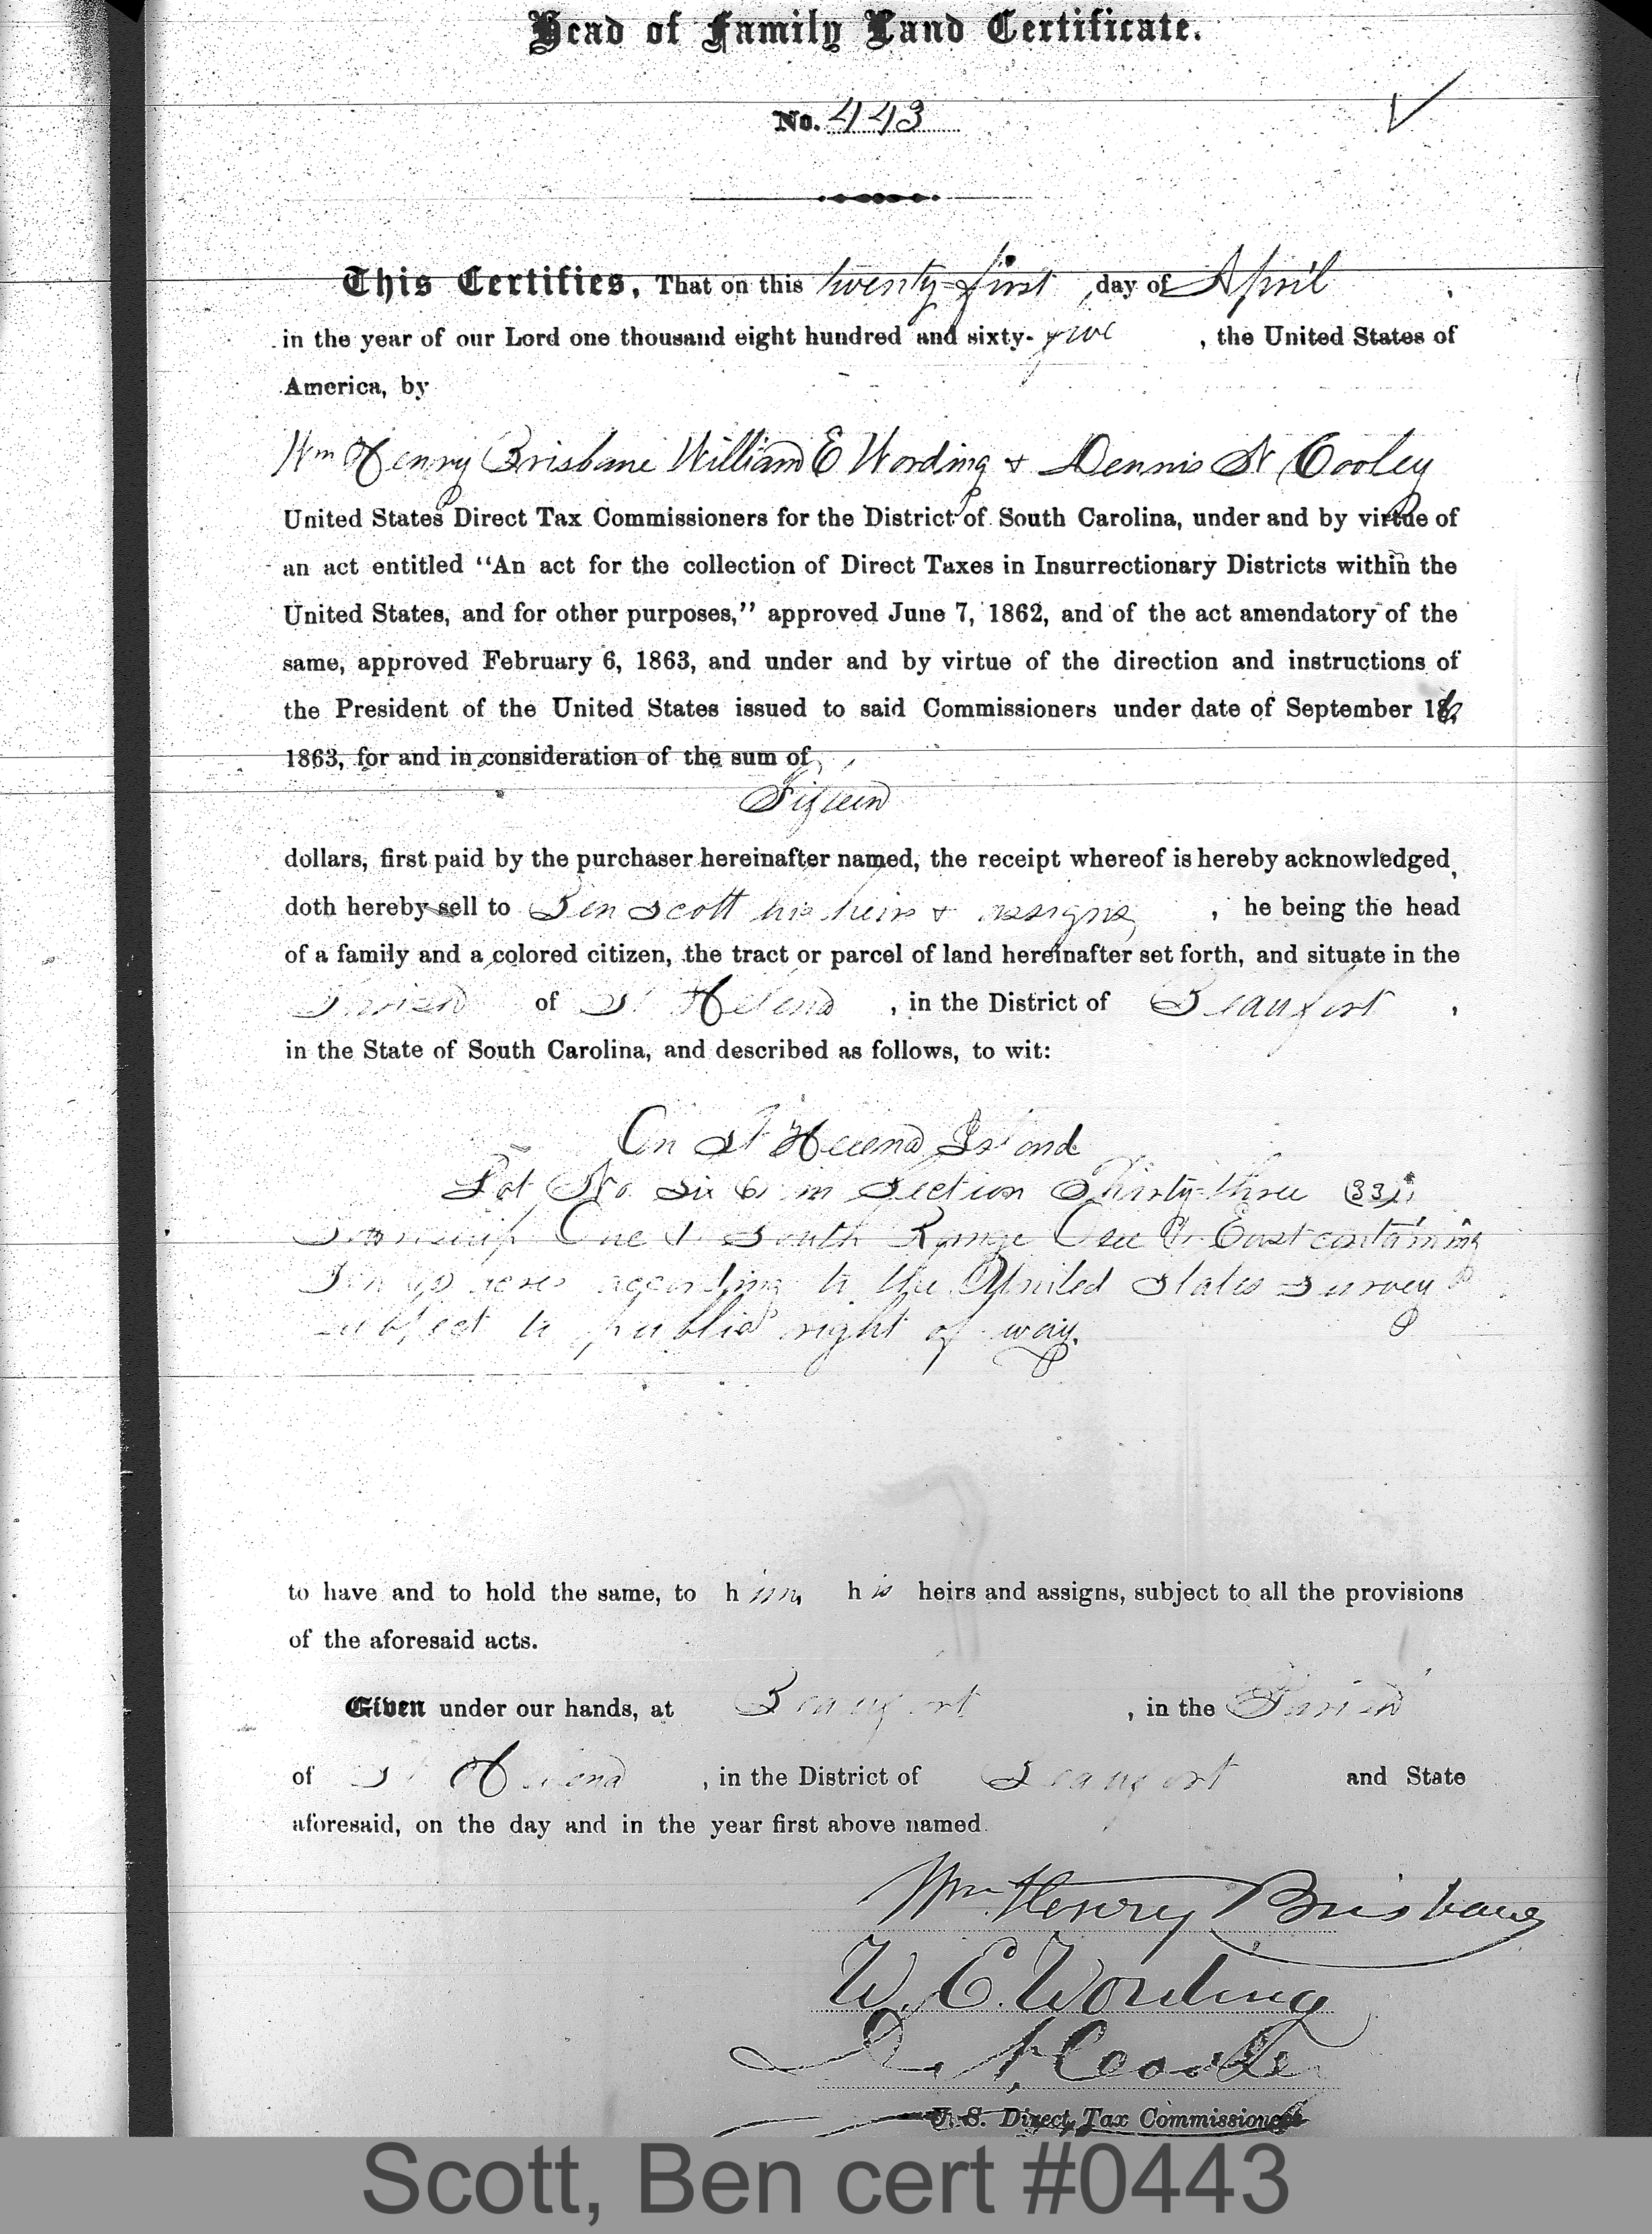 Head of Family Land Certificate.
No. 443
This Certifies, That on this twenty-first, day of April,
in the year of our Lord one thousand eight hundred and sixty-five, the United States of
America, by
Wm Henry Brisbane William E Wording & Dennis N Cooley
United States Direct Tax Commissioners for the District of South Carolina, under and by virtue of
an act entitled "An act for the collection of Direct Taxes in Insurrectionary Districts within the
United States, and for other purposes," approved June 7, 1862, and of the act amendatory of the
same, approved February 6, 1863, and under and by virtue of the direction and instructions of
the President of the United States issued to said Commissioners under date of September 16,
1863, for and in consideration of the sum of
Fifteen
dollars, first paid by the purchaser hereinafter named, the receipt whereof is hereby acknowledged,
doth hereby sell to Ben Scott his heirs & assigns, he being the head
of a family and a colored citizen, the tract or parcel of land hereinafter set forth, and situate in the
Parish of St Helena, in the District of Beaufort,
in the State of South Carolina, and described as follows, to wit:
On St Helena Island
Lot No. Six (6) in Section Thirty-three (33),
Township One (1) South Range One (1) East containing
Ten (10) acres according to the United States Survey
subject to public right of way.
to have and to hold the same, to him, his heirs and assigns, subject to all the provisions
of the aforesaid acts.
Given under our hands, at Beaufort, in the Parish
of St Helena, in the District of Beaufort and State
aforesaid, on the day and in the year first above named.
Wm. Henry Brisbane
W. E. Wording
D. N. Cooley
U. S. Direct Tax Commissioners
Scott, Ben cert #0443